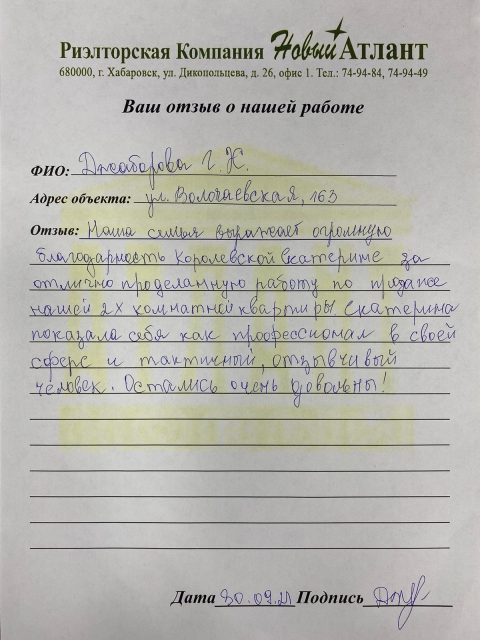 Риэлторская Компания Новый Атлант
680000, г. Хабаровск, ул. Дикопольцева, д. 26, офис 1. Тел.: 74-94-84, 74-94-49
Ваш отзыв о нашей работе
ФИО: Джаборова Г. К.
Адрес объекта: ул. Волочаевская, 163
Отзыв: Наша семья выражает огромную
благодарность Королевской Екатерине за
отлично проделанную работу по продаже
нашей 2х комнатной квартиры Екатерина
показала себя как профессионал в своей
сфере и тактичный, отзывчивый
человек. Остались очень довольны!
Дата 30.09.21 Подпись